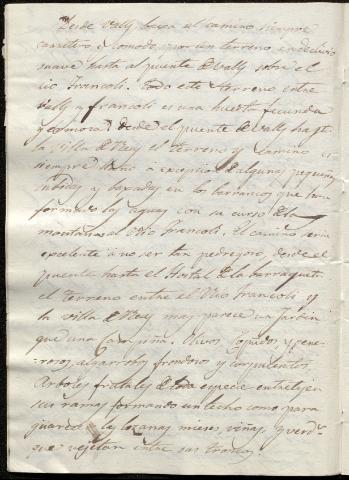 Desde Valls baxa el camino siempre
carretero y comodo por un terreno en declivio
suave hasta el puente de Valls sobre el
rio Francoli. Todo este terreno entre
Valls y Francoli es una huerta fecunda
y hermosa. Desde el puente de Valls hasta
la villa de Reus el terreno y camino es
siempre llano á excepcion de algunas pequeñas
subidas y baxadas en los barrancos que han
formado las aguas con su curso de las
montañas al Rio Francoli. El camino seria
excelente á no ser tan pedregoso, desde el
puente hasta el Hostal de la barraqueta
el terreno entre el Rio Francoli y
la villa de Reus mas parece un Jardin
que una campiña. Olivos copudos, y gene-
rosos, algarrobos frondosos y corpulentos
Arboles frutales de toda especie entretejen
sus ramas formando un techo como para
guardar las lozanas mieses, viñas, y verd.s
que vejetan entre sus troncos.